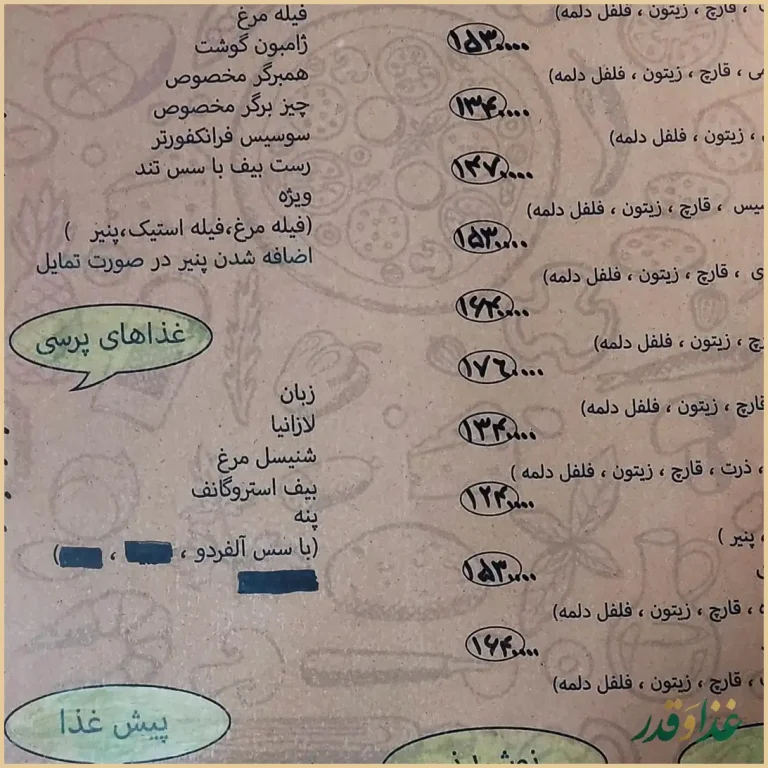 ، قارچ ، زیتون ، فلفل دلمه)
۱۵۳,۰۰۰
، قارچ ، زیتون ، فلفل دلمه)
۱۳۴,۰۰۰
، زیتون ، فلفل دلمه)
۱۴۷,۰۰۰
، قارچ ، زیتون ، فلفل دلمه)
۱۵۳,۰۰۰
، قارچ ، زیتون ، فلفل دلمه)
۱۶۴,۰۰۰
، زیتون ، فلفل دلمه)
۱۷۶,۰۰۰
قارچ ، زیتون ، فلفل دلمه)
۱۳۴,۰۰۰
، ذرت ، قارچ ، زیتون ، فلفل دلمه )
۱۲۴,۰۰۰
، پنیر )
۱۵۳,۰۰۰
، قارچ ، زیتون ، فلفل دلمه)
۱۶۴,۰۰۰
، قارچ ، زیتون ، فلفل دلمه)
فیله مرغ
ژامبون گوشت
همبرگر مخصوص
چیز برگر مخصوص
سوسیس فرانکفورتر
رست بیف با سس تند
ویژه
(فیله مرغ،فیله استیک،پنیر )
اضافه شدن پنیر در صورت تمایل
غذاهای پرسی
زبان
لازانیا
شنیسل مرغ
بیف استروگانف
پنه
(با سس آلفردو ، ، )
پیش غذا
غذاوَقدر